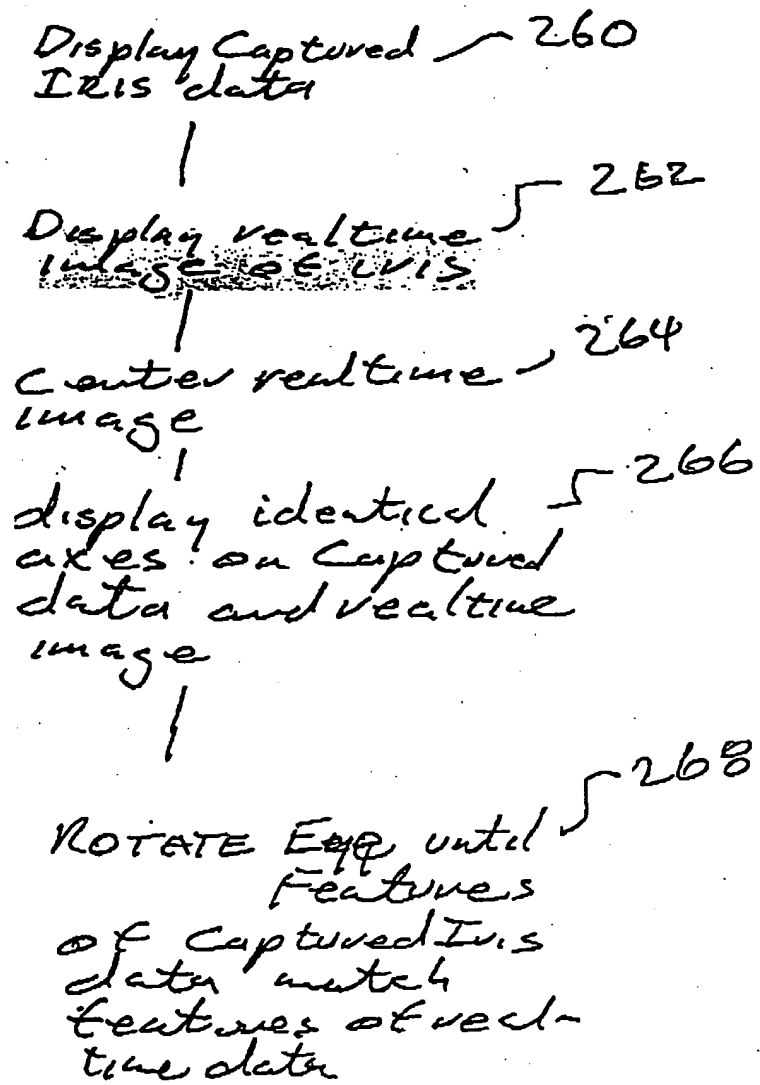 Display Captured 260
IRIS data
262
Display realtime
image of iris
264
Center realtime
image
266
display identical
axes on Captured
data and realtime
image
268
ROTATE until
Features
of Captured Iris
data match
features of real-
time data